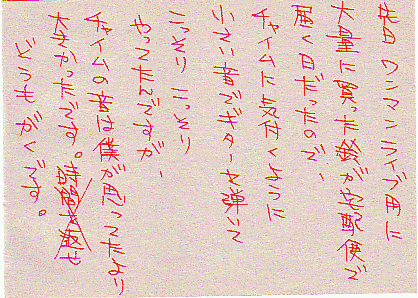 先日ワンマンライブ用に
大量に買った鈴が宅配便で
届く日だったので、
チャイムに気付くように
小さい音でギターを弾いて
こっそりこっそり
やってたんですが、
チャイムの音は僕が思ってたより
大きかったです。時間を返せ
どうもがくです。